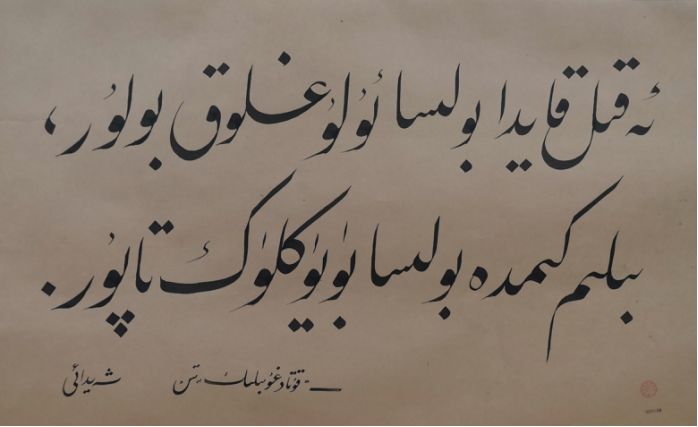 ئەقىل قايدا بولسا ئۇلۇغلۇق بولۇر،
بىلىم كىمدە بولسا بۈيۈكلۈك تاپۇر.
— قۇتادغۇبىلىك تىن شەيدائى